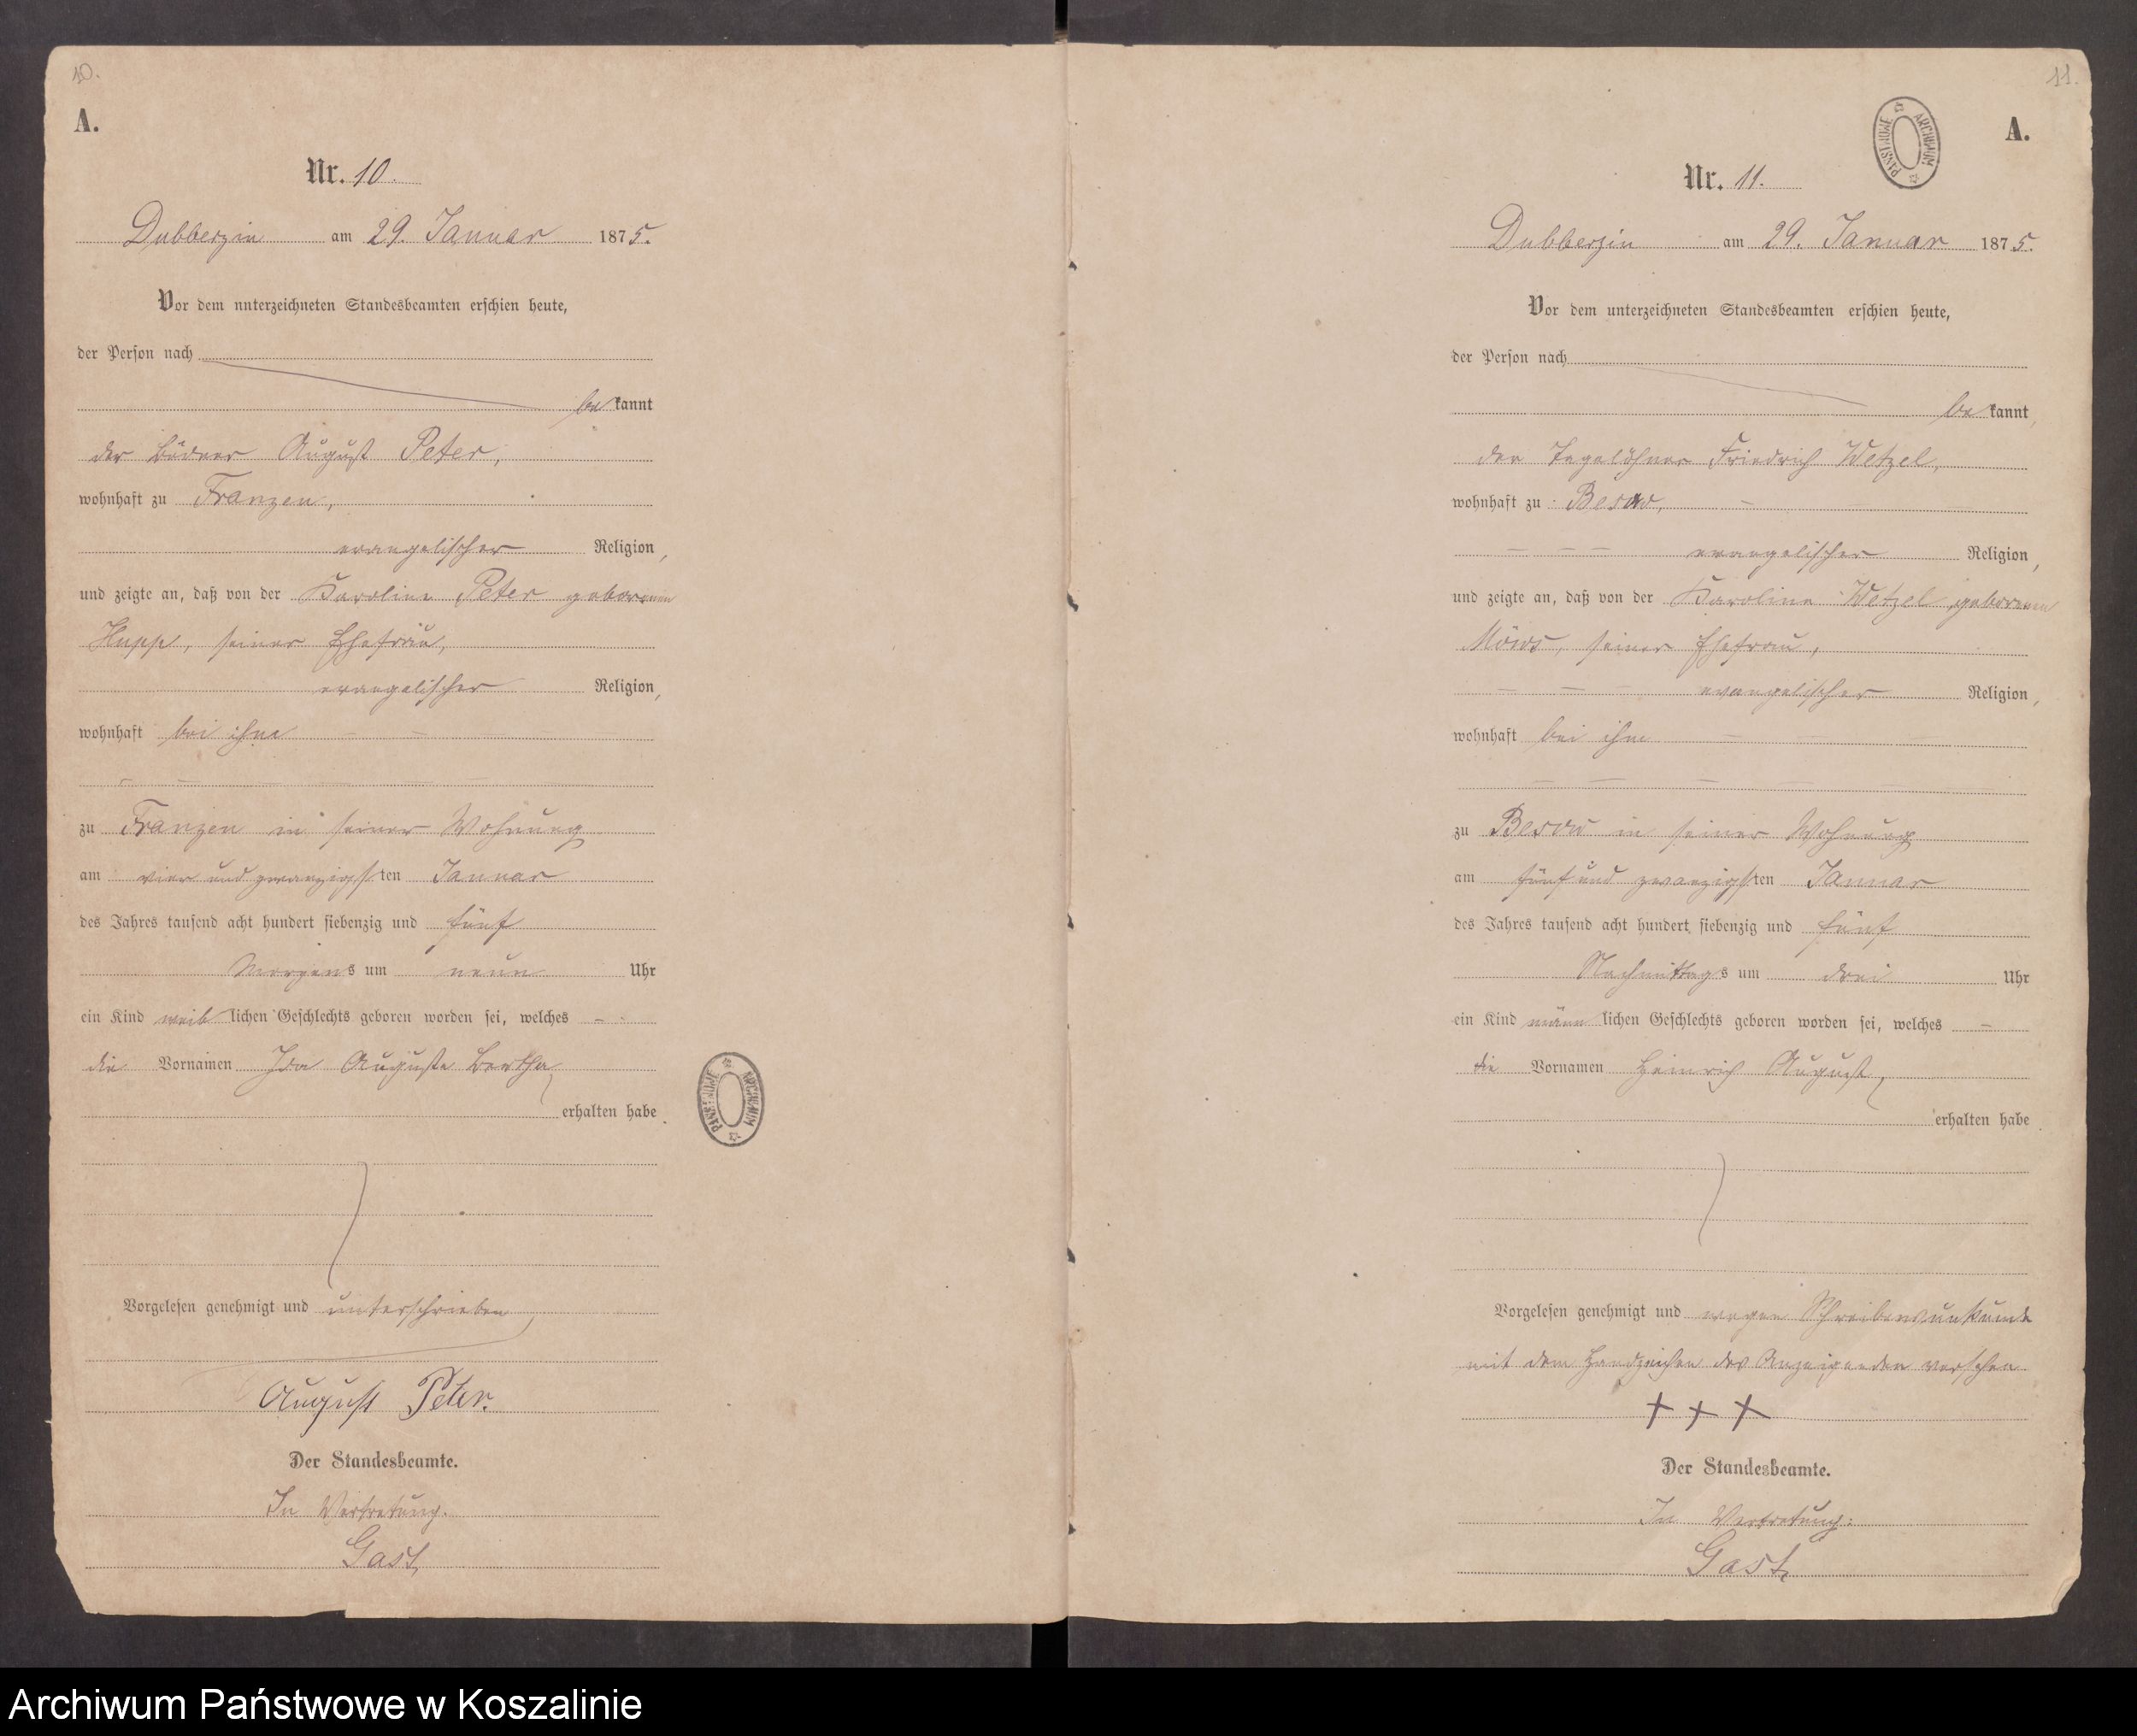 10.
A.
Nr. 10.
Dubberzin am 29. Januar 1875.
Vor dem unterzeichneten Standesbeamten erschien heute,
der Person nach
bekannt
der Büdner August Peter,
wohnhaft zu Franzen,
evangelischer Religion,
und zeigte an, daß von der Karoline Peter geborenen
Hupp, seiner Ehefrau,
evangelischer Religion,
wohnhaft bei ihm
zu Franzen in seiner Wohnung
am vier und zwanzigsten Januar
des Jahres tausend acht hundert siebenzig und fünf
Morgens um neun Uhr
ein Kind weiblichen Geschlechts geboren worden sei, welches –
die Vornamen Ida Auguste Bertha,
erhalten habe.
Vorgelesen genehmigt und unterschrieben,
August Peter.
Der Standesbeamte.
In Vertretung.
Gast,
PAŃSTWOWE ARCHIWUM
11.
A.
PAŃSTWOWE ARCHIWUM
Nr. 11.
Dubberzin am 29. Januar 1875.
Vor dem unterzeichneten Standesbeamten erschien heute,
der Person nach
bekannt,
der Tagelöhner Friedrich Wetzel,
wohnhaft zu Besow,
evangelischer Religion,
und zeigte an, daß von der Karoline Wetzel, geborenen
seiner Ehefrau,
evangelischer Religion,
wohnhaft bei ihm
zu Besow in seiner Wohnung
am fünf und zwanzigsten Januar
des Jahres tausend acht hundert siebenzig und fünf
Nachmittags um drei Uhr
ein Kind männlichen Geschlechts geboren worden sei, welches –
die Vornamen Heinrich August,
erhalten habe.
Vorgelesen genehmigt und wegen Schreibensunkunde
mit dem Handzeichen des Anzeigenden versehen
+ + +
Der Standesbeamte.
In Vertretung:
Gast,
Archiwum Państwowe w Koszalinie